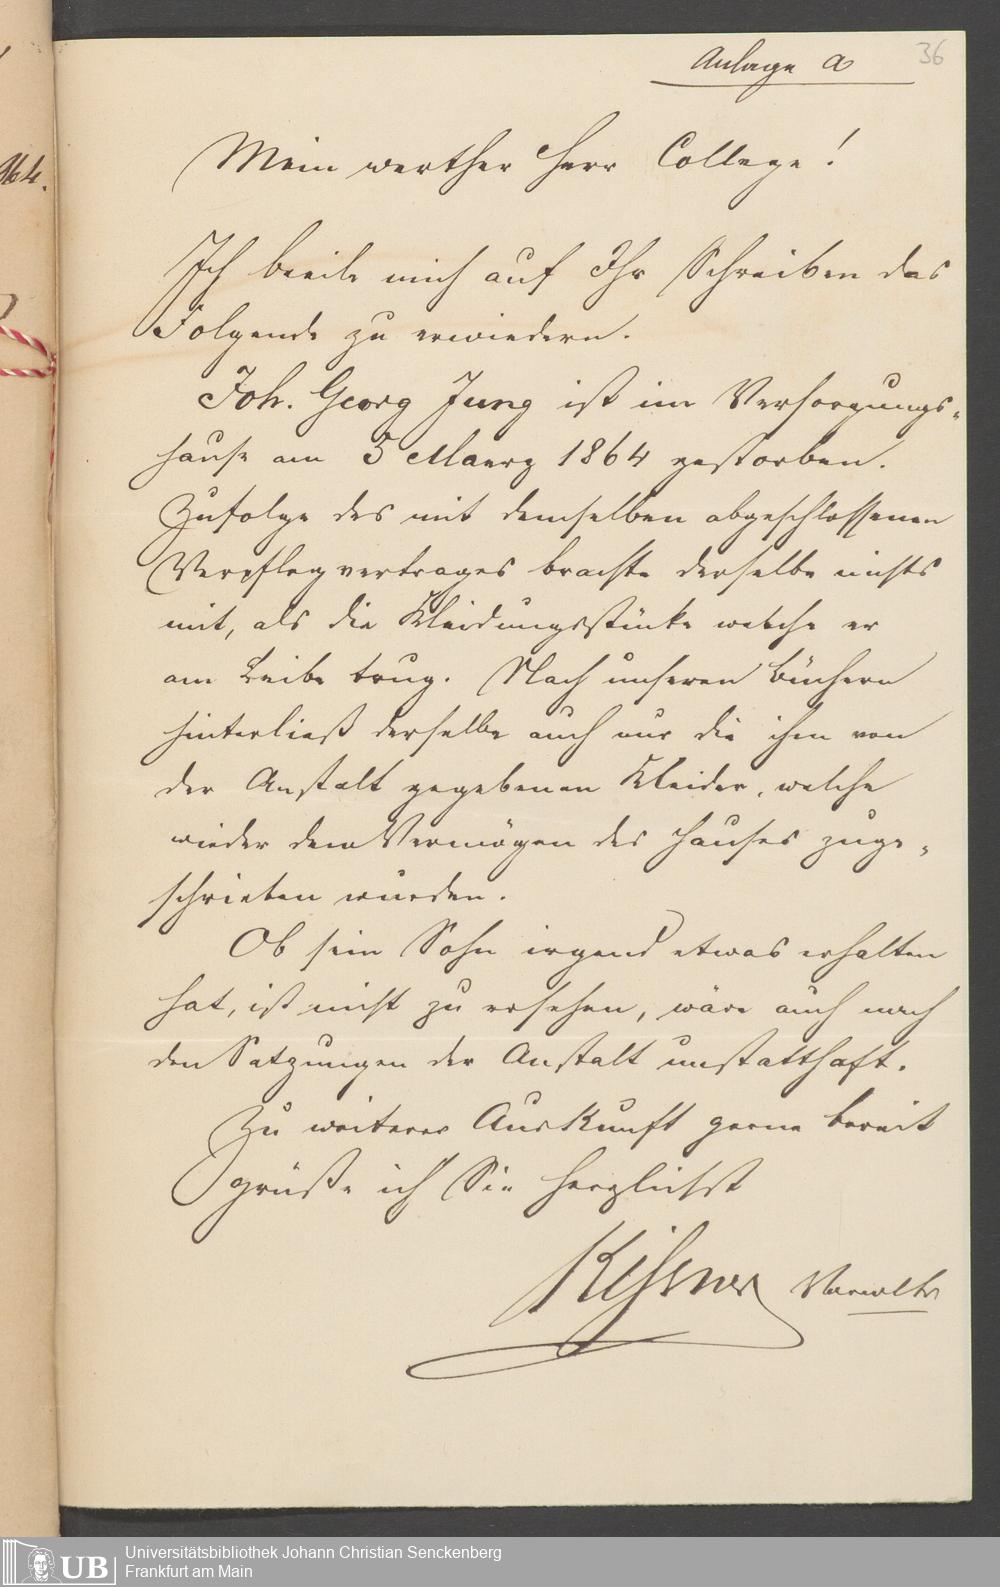 Anlage a
36
Mein werther Herr College!
Ich beeile mich auf Ihr Schreiben das
Folgende zu erwiedern.
Joh. Georg Jung ist im Versorgungs-
hause am 3 Maerz 1864 gestorben.
Zufolge des mit demselben abgeschlossenen
Verpflegvertrages brachte derselbe nichts
mit, als die Kleidungsstücke welche er
am Leibe trug. Nach unseren Büchern
hinterließ derselbe auch nur die ihm von
der Anstalt gegebenen Kleider, welche
wieder dem Vermögen des Hauses zuge-
schrieben wurden.
Ob sein Sohn irgend etwas erhalten
hat, ist nicht zu ersehen, wäre auch nach
den Satzungen der Anstalt unstatthaft.
Zu weiterer Auskunft gerne bereit
grüße ich Sie herzlichst
Verwalter
964.
UB
Universitätsbibliothek Johann Christian Senckenberg
Frankfurt am Main